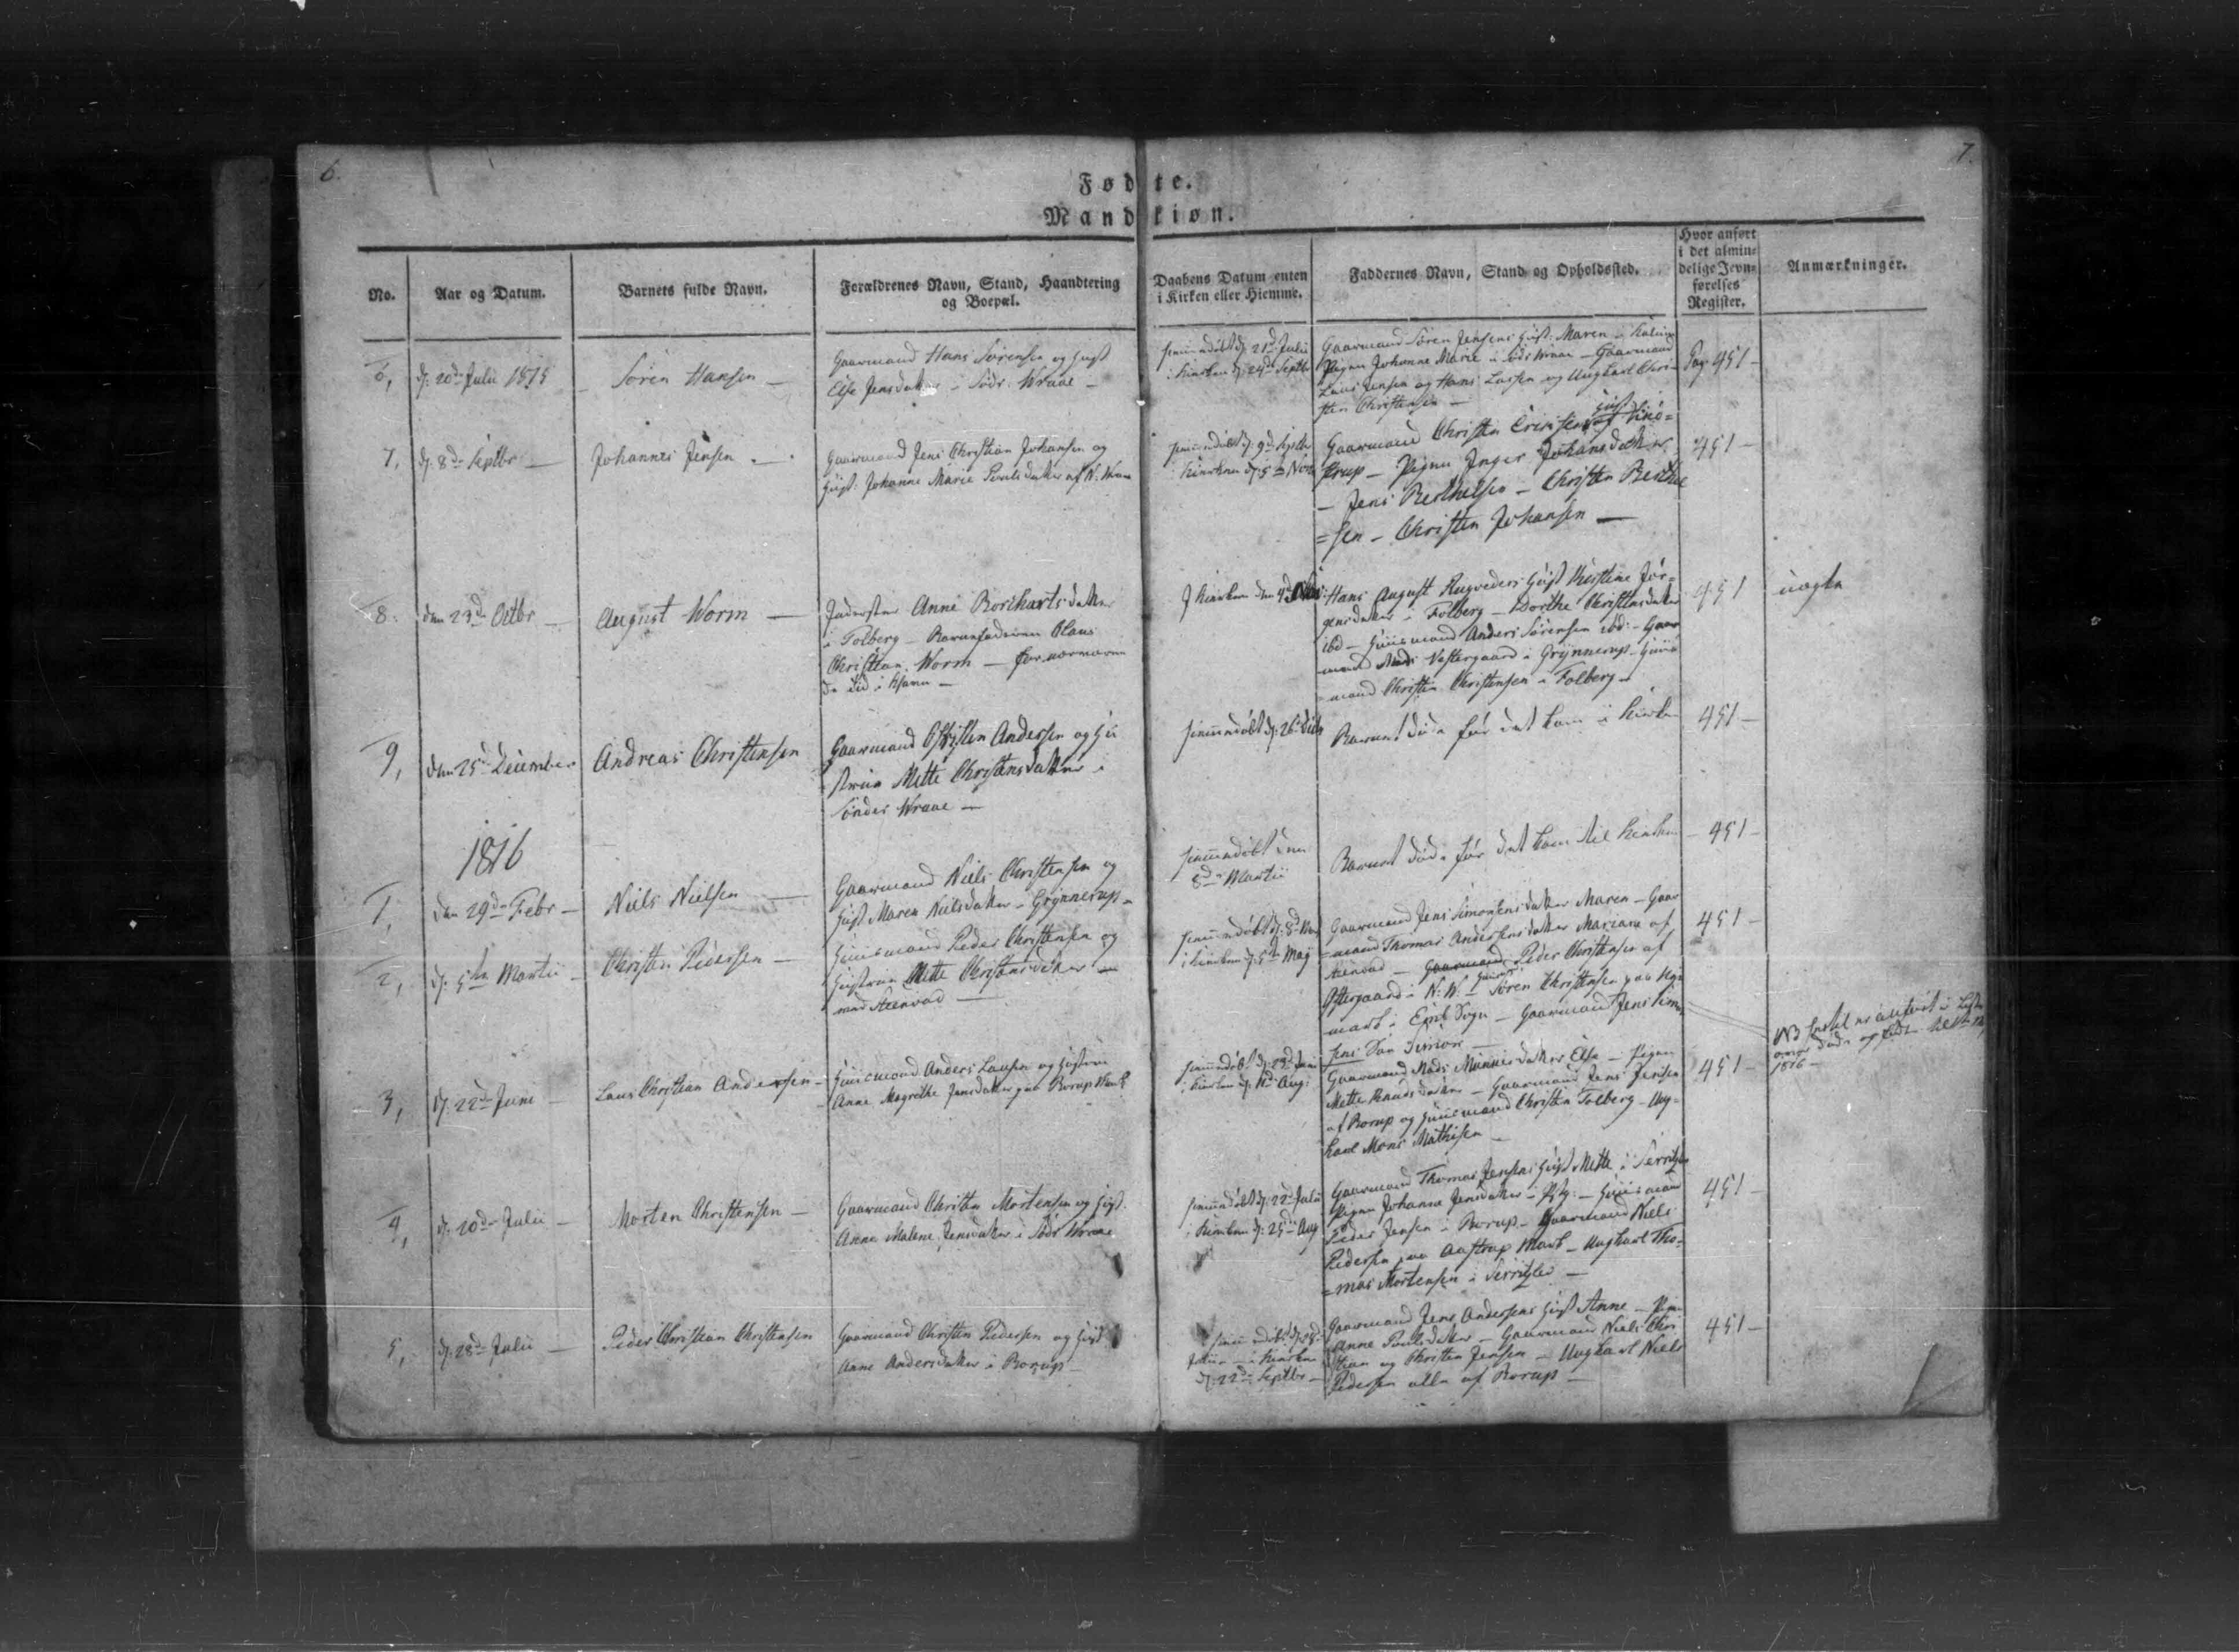 6.
7.
Fødte.
Mandkiøn.
No.
Aar og Datum.
Barnets fulde Navn.
Forældrenes Navn, Stand, Haandtering
og Boepæl.
Daabens Datum enten
i Kirken eller Hiemme.
Faddernes Navn, Stand og Opholdssted.
Hvor anført
i det almin=
delige Jevn=
førelses
Register.
Anmærkninger.
6,
d: 20de Julii 1815
Søren Hansen
Gaarmand Hans Sørensen og Hust
Else Jensdatter i Sødr: Wraae
hiemmedøbt d: 21de Julii
i Kirken d: 24de Septbr
Gaarmand Søren Jensens Hust: Maren
Pigen Johanne Marie i Södr Wraae - Gaarmand
Jensen og Hans Larsen og Ungkarl Chri-
sten Christensen
Pag 451
7,
d: 8de Septbr
Johannes Jensen
Gaarmand Jens Christian Johansen og
Hust: Johanne Marie Poulsdatter af N: Wraae
hiemmedøbt d: 9de Septbr
i Kirken d: 5te Nov
Gaarmand Christen Hust
=strup - Pigen Inger Johansdatter
- Jens Berthelsen - Christen Berthel
=sen - Christen Johansen
451
8.
den 23de Octbr
August Worm
Anne Borchartsdatter
i Folberg - Barnefaderen Claus
Christian Worm - for nærværen
de Tid i
I Kirken den 4de
Hans August Hust Kirstine Jør=
gensdatter i Folberg - Dorthe Christensdatter
ibd - Huusmand Anders Sørensen ibd: - Gaar
mand Mads Vestergaard i Grynnerup - Huus
mand Christen Christensen i Folberg
451
uægte
9,
den 25de December
Andreas Christensen
Gaarmand Christen Andersen og Hu
struе Mette Christensdatter i
Sønder Wraae
hiemmedøbt d: 26de
Barnet døde før det kom i Kirken
451
1816
1,
den 29de Febr
Niels Nielsen
Gaarmand Niels Christensen og
Hust Maren Nielsdatter - Grynnerup
hiemmedøbt den
8de Martii
Barnet døde før det kom til Kirken
451
2,
d: 5te Martii
Christen Pedersen
Huusmand Peder Christensen og
Hustrue Mette Christensdatter
ved Steenvad
hiemmedøbt d: 8de
i Kirken d: 5te Maj
Gaarmand Jens Simonsens datter Maren - Gaar
=mand Thomas Andersens datter Mariane af
Steenvad - Gaarmand Peder Christensen af
Østergaard i N: W. - Huusm Søren Christensen paa
mark i Sogn - Gaarmand Jens Simon
sens Søn Simon
451
3,
d: 22de Juni
Laus Christian Andersen
Huusmand Anders Lausen og Hustrue
Anne Magrethe Jensdatter paa Borup Mark
hiemmedøbt d: 23de Juni
i Kirken d: Aug:
Gaarmand Mads datter Else - Pigen
Mette Knudsdatter - Gaarmand Jens Jensen
af Borup og Huusmand Christen Folberg - Ung=
karl Mons Mathisen
451
NB
1816
4,
d: 20de Julii
Morten Christensen
Gaarmand Christen Mortensen og Hust:
Anne Malene Jensdatter i Sødr Wraae
hiemmedøbt d: 22de Julii
i Kirken d: 25de Aug
Gaarmand Thomas Jensens Hust Mette i Serritzlev
Pigen Johanne Jensdatter i - Huusmand
Peder Jensen i Borup - Gaarmand Niels
Pedersen paa Aastrup Mark - Ungkarl Tho-
=mas Mortensen i Serritzlev
451
5,
d: 28de Julii
Peder Christian Christensen
Gaarmand Christen Pedersen og Hust
Anne Andersdatter i Borup
hiemmedøbt d:
Julii - i Kirken
d: 22de Septbr
Gaarmand Jens Andersens Hust Anne - Pigen
Anne Poulsdatter - Gaarmand Niels Chri
stian og Christen Jensen - Ungkarl Niels
Pedersen alle af Borup
451